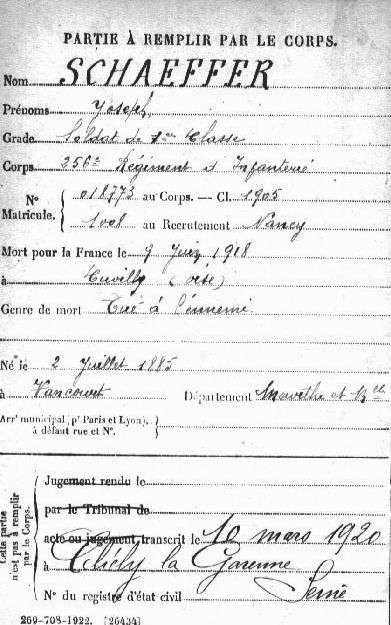 PARTIE À REMPLIR PAR LE CORPS.
Nom SCHAEFFER
Prénoms Joseph
Grade Soldat de 1ere Classe
Corps 256e Régiment d'Infanterie
N° Matricule. 018773 au Corps. — Cl. 1905
1008 au Recrutement Nancy
Mort pour la France le 9 Juin 1918
à Cuvilly (oise)
Genre de mort Tué à l'ennemi
Né le 2 Juillet 1885
à Vancourt Département Meurthe et Mlle
Arrt municipal (pr Paris et Lyon),
à défaut rue et N°.
Cette partie n'est pas à remplir par le Corps.
Jugement rendu le
par le Tribunal de
acte ou jugement transcrit le 10 mars 1920
à Clichy la Garenne
Seine
N° du registre d'état civil
269-708-1922. [26434]